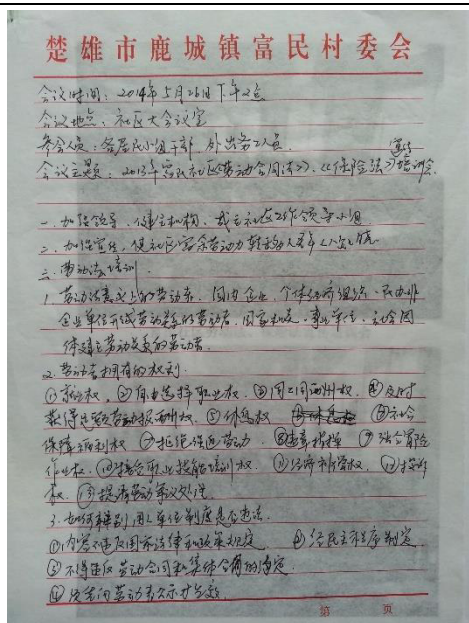 楚雄市鹿城镇富民村委会
会议时间：2014年5月26日下午2点
会议地点：社区大会议室
参会人员：各居民小组干部、外出务工人员
宣传
会议主题：2013年富民社区《劳动合同法》、《保险法》培训会
一、加强领导、健全机构、成立社区工作领导小组
二、加强宣传、使社区富余劳动力转移
三、劳动法培训
1、劳动法意义上的劳动者、国内企业、个体经济组织、民办非
企业单位形成劳动关系的劳动者、国家机关、事业单位、社会团
体建立劳动关系的劳动者。
2、劳动者拥有的权利
①就业权、②自由选择职业权 ③同工同酬权、④及时
获得足额劳动报酬权 ⑤休息权 ⑥社会
保障福利权 ⑦拒绝强迫劳动 ⑧违章指挥 ⑨
作业权、⑩接受职业技能培训权
权、⑬提请劳动争议处理
3、如何辨别用人单位制度是否违法
①内容不违反国家法律和政策规定 ②经民主程序制定
③不得违反劳动合同和集体合同的约定
④应当向劳动者公示才生效
第 页